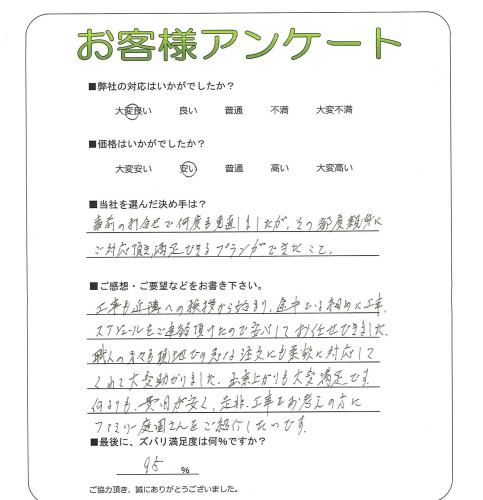 お客様アンケート
■弊社の対応はいかがでしたか？
大変良い 良い 普通 不満 大変不満
■価格はいかがでしたか？
大変安い 安い 普通 高い 大変高い
■当社を選んだ決め手は？
事前の打合せで何度も見直しましたが、その都度親身に
ご対応頂き、満足できるプランができたこと。
■ご感想・ご要望などをお書き下さい。
工事も近隣への挨拶から始まり、途中では細めに工事
スケジュールをご連絡頂けたので安心してお任せできました。
職人の方々も現地での急な注文にも柔軟に対応して
くれて大変助かりました。出来上がりも大変満足です。
何よりも、費用が安く、是非、工事をお考えの方に
ファミリー庭園さんをご紹介したいです。
■最後に、ズバリ満足度は何%ですか？
95 %
ご協力頂き、誠にありがとうございました。